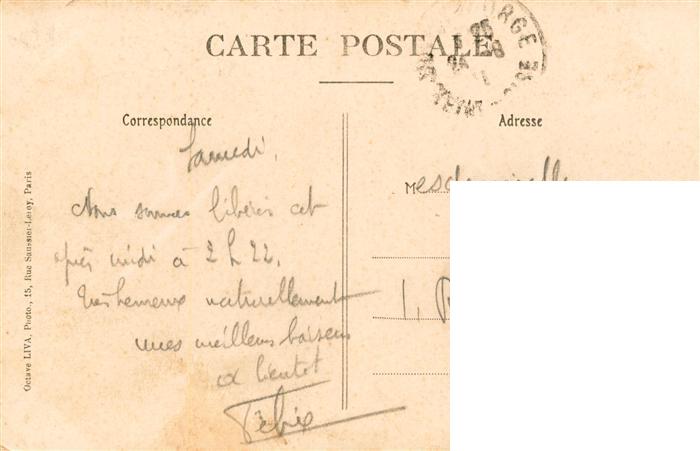 CARTE POSTALE
Correspondance
Samedi,
Nous sommes libérés cet
après midi à 2 h 22.
Très heureux naturellement
mes meilleurs baisers
à bientôt
Félix
Adresse
Mesdemoiselle
1,
Octave LIVA, Photo., 15, Rue Saussier-Leroy, Paris